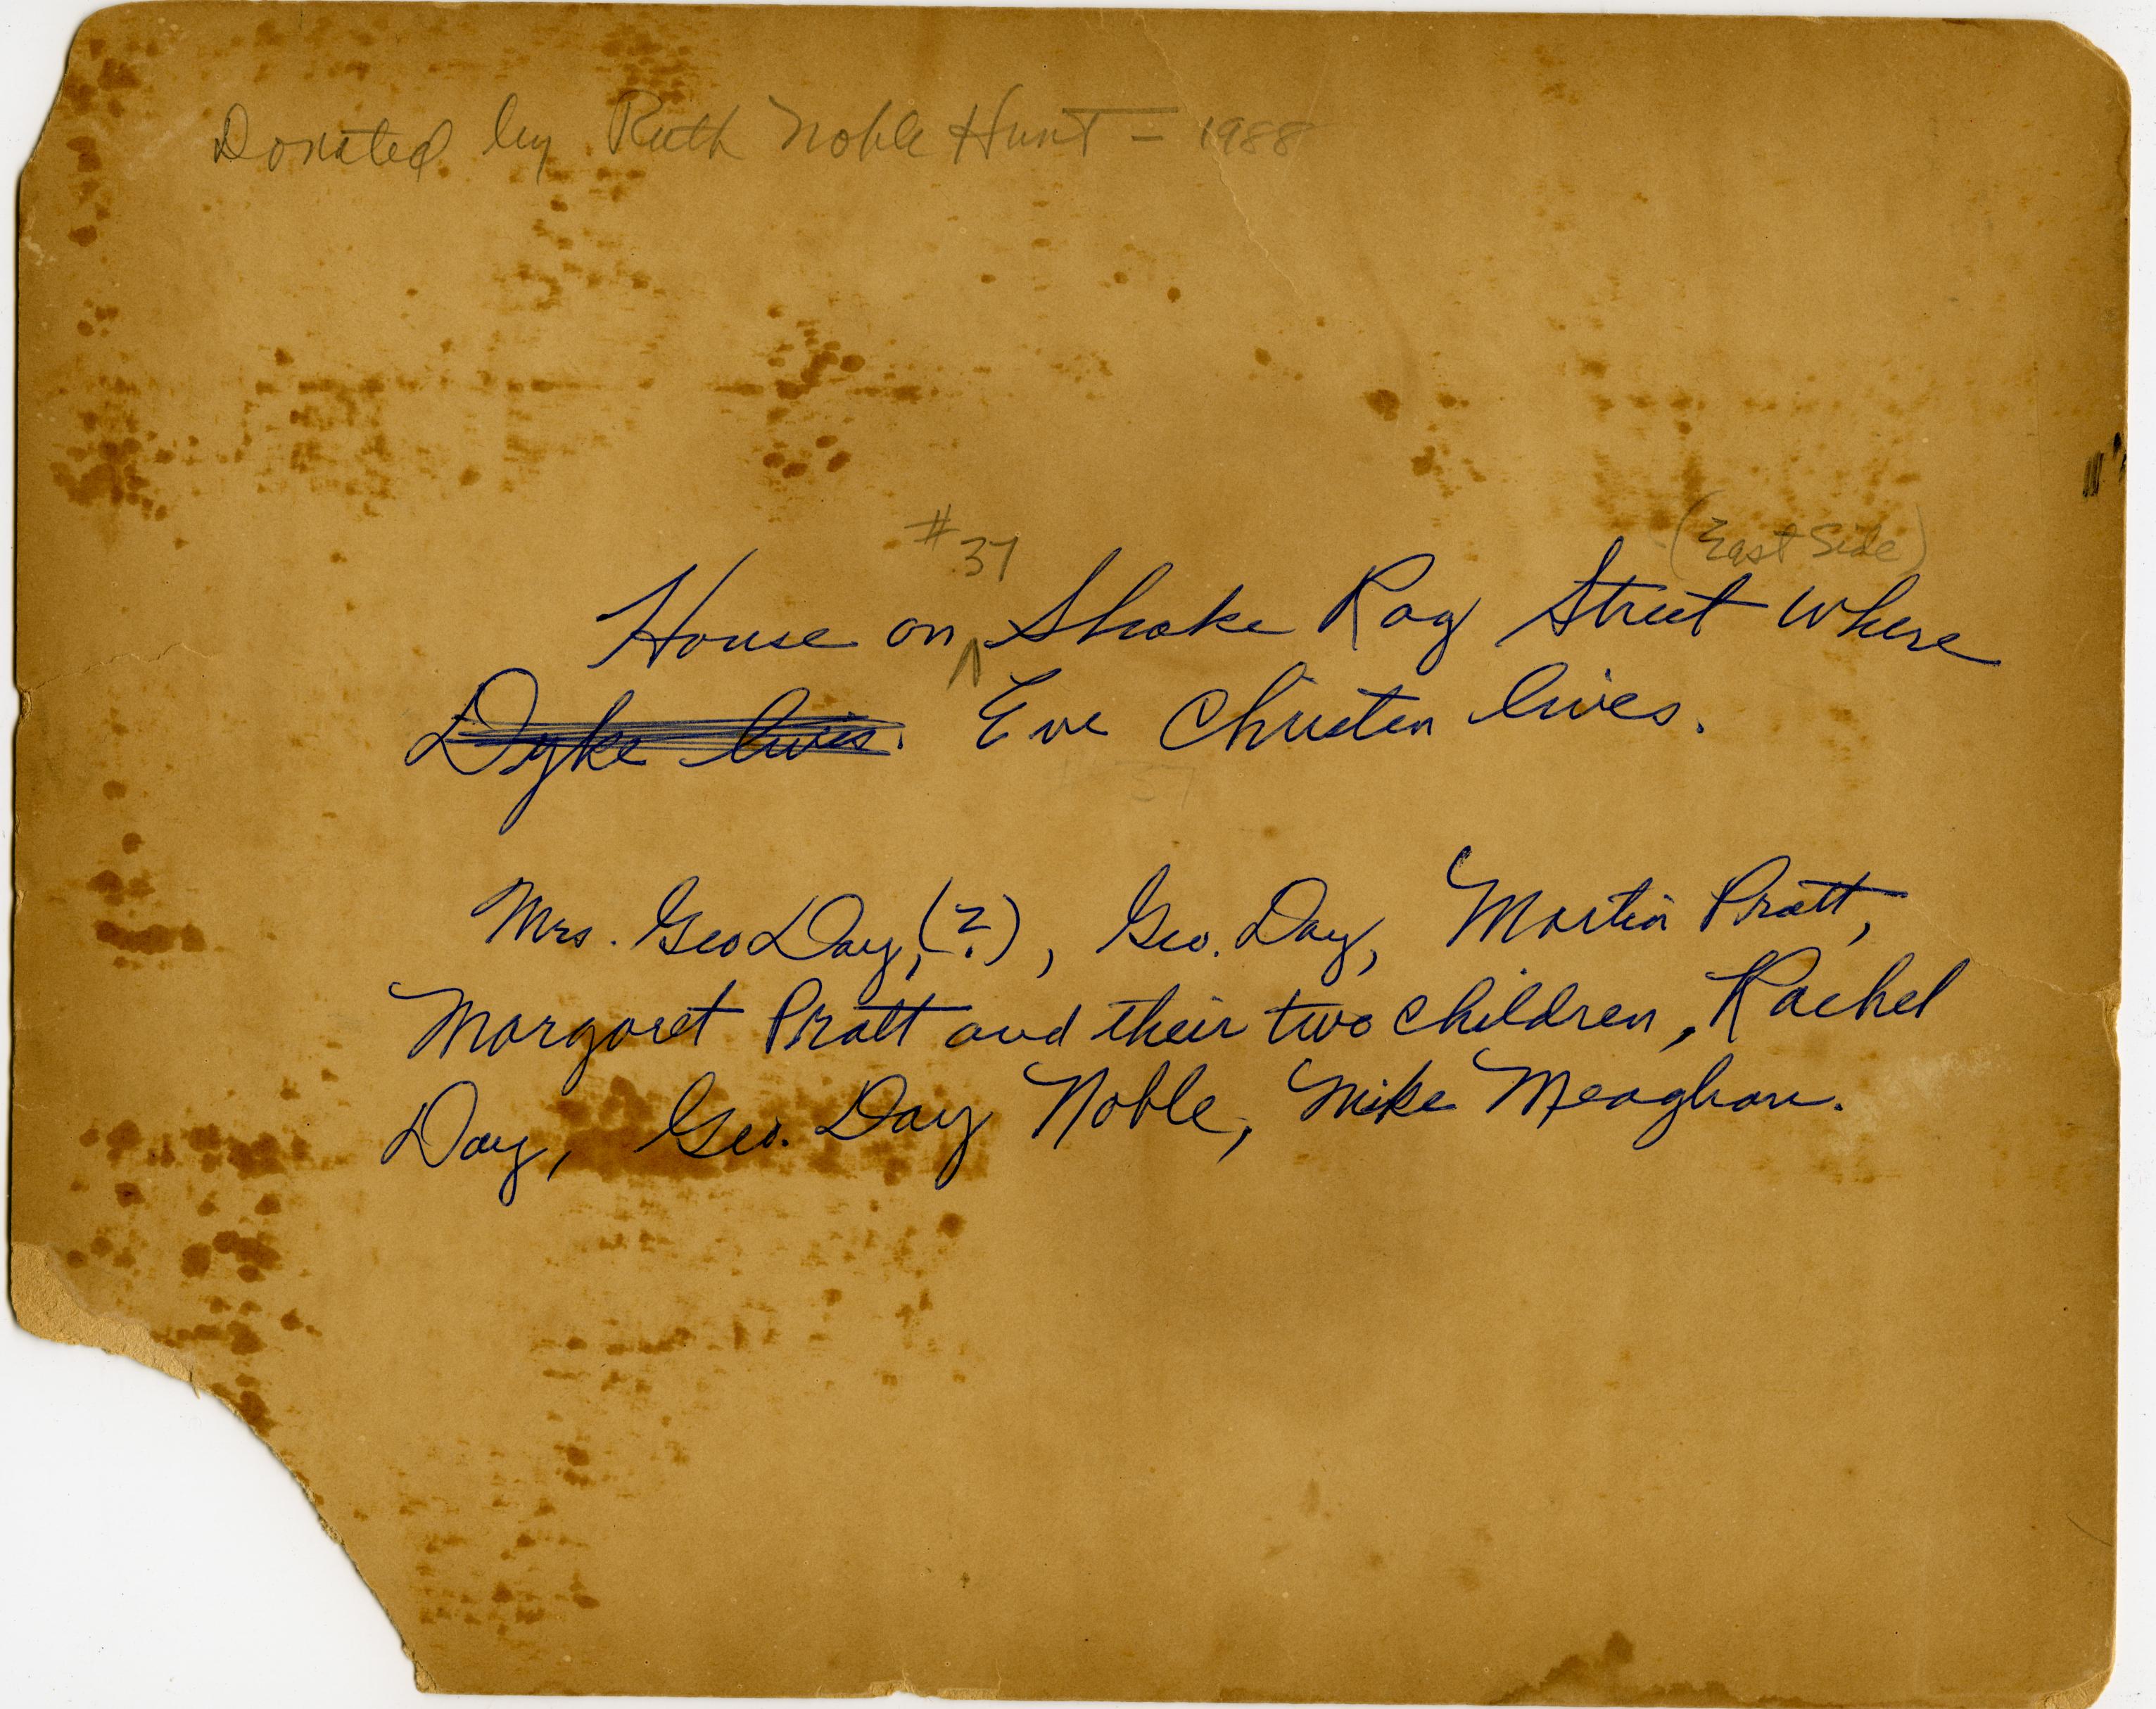 Donated by Ruth Noble Hunt = 1988
#37 (East Side)
House on Shake Rag Street where
Dyke lives. Eve Christen lives.
37
Mrs. Geo Day, (?), Geo. Day, Martin Pratt,
Margaret Pratt and their two children, Rachel
Day, Geo. Day Noble, Mike Meaghan.